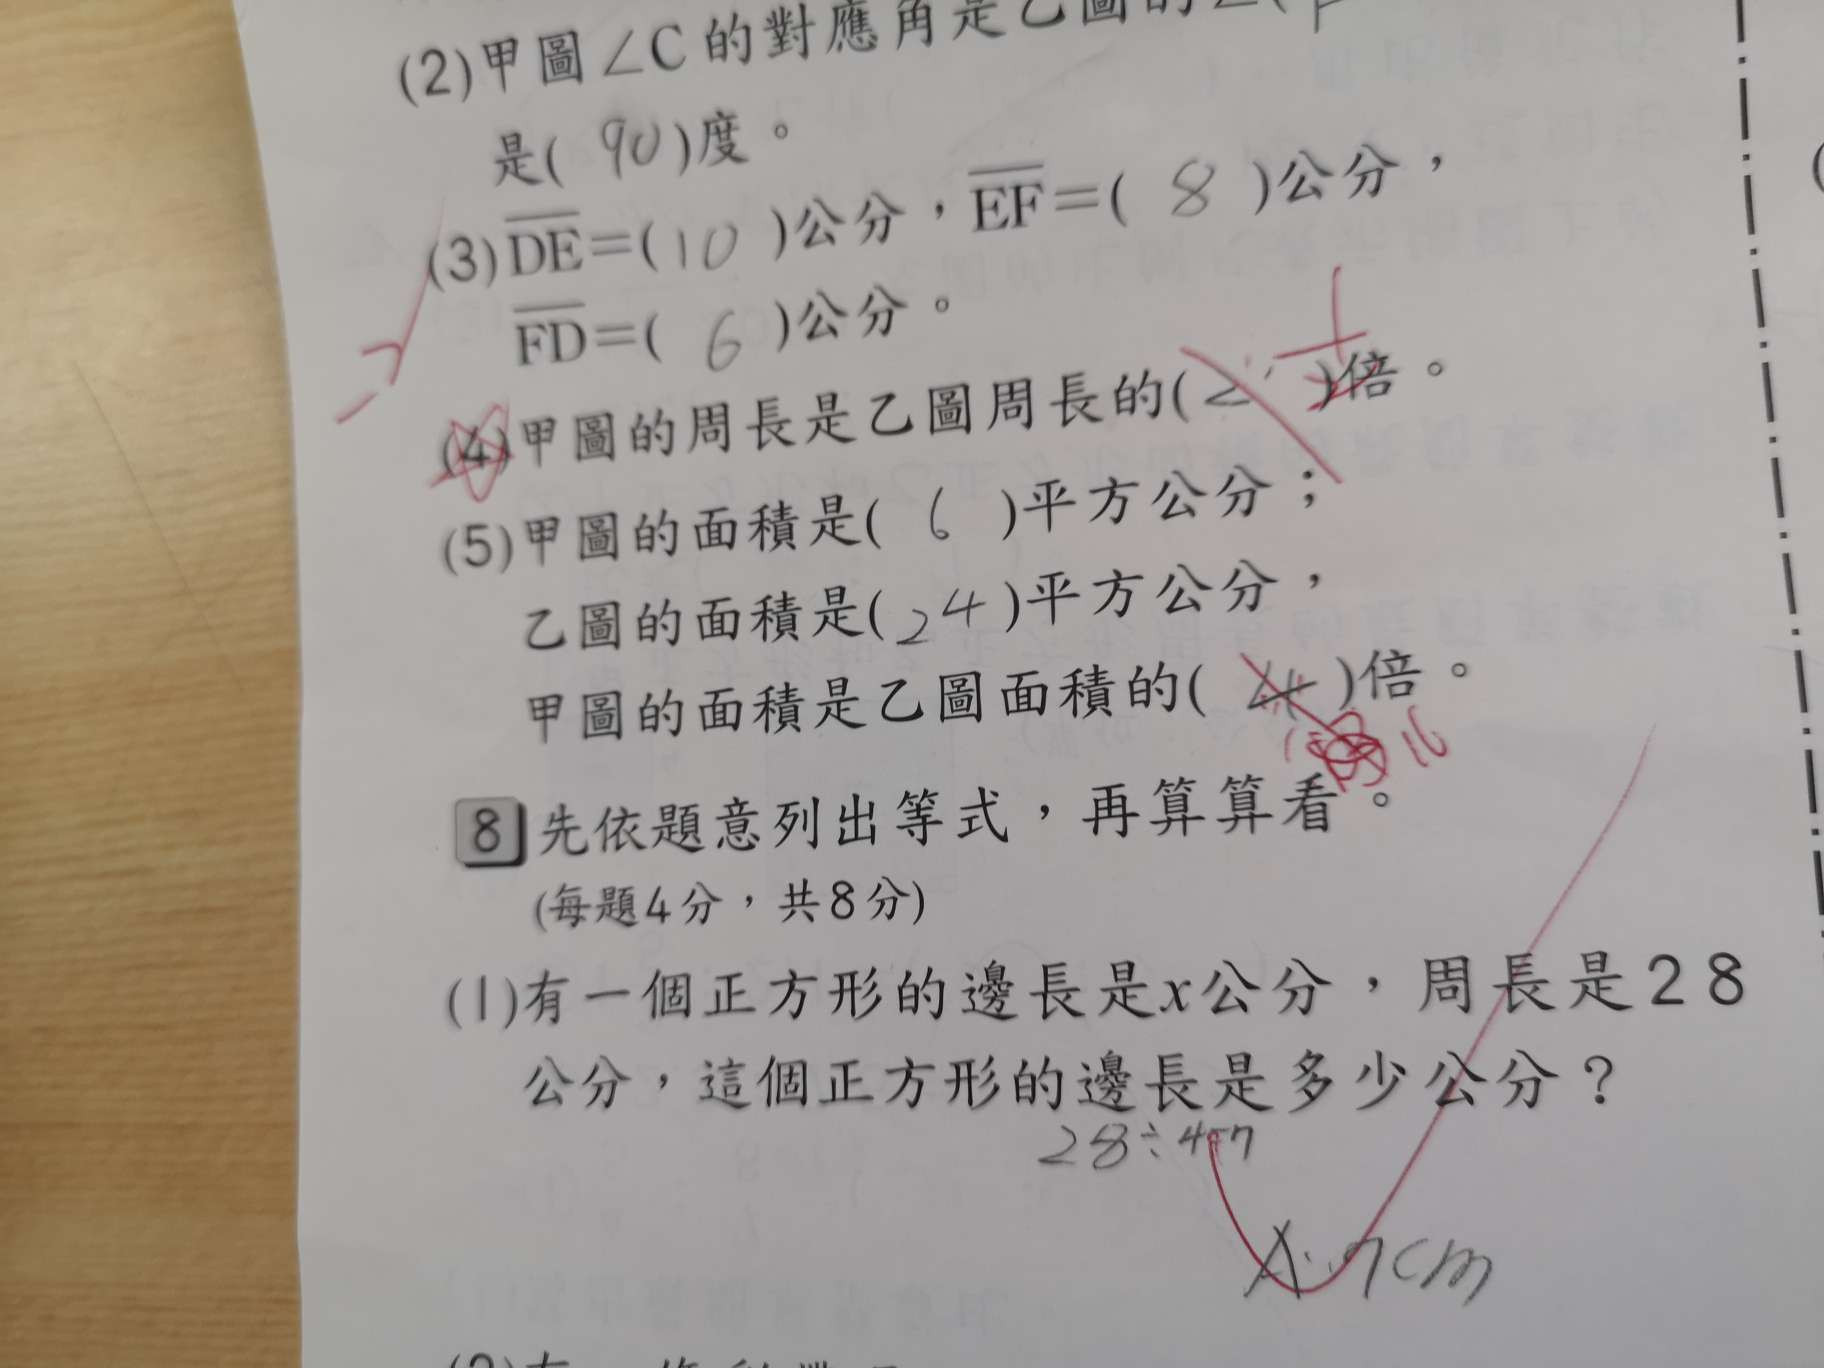 (2)甲圖∠C的對應角是乙圖的∠(
是( 90 )度。
(3)DE=( 10 )公分，EF=( 8 )公分，
FD=( 6 )公分。
(4)甲圖的周長是乙圖周長的( 2 )倍。
(5)甲圖的面積是( 6 )平方公分；
乙圖的面積是( 24 )平方公分，
甲圖的面積是乙圖面積的( 4 )倍。
8 先依題意列出等式，再算算看。
(每題4分，共8分)
(1)有一個正方形的邊長是x公分，周長是28
公分，這個正方形的邊長是多少公分？
28÷4=7
A:7cm